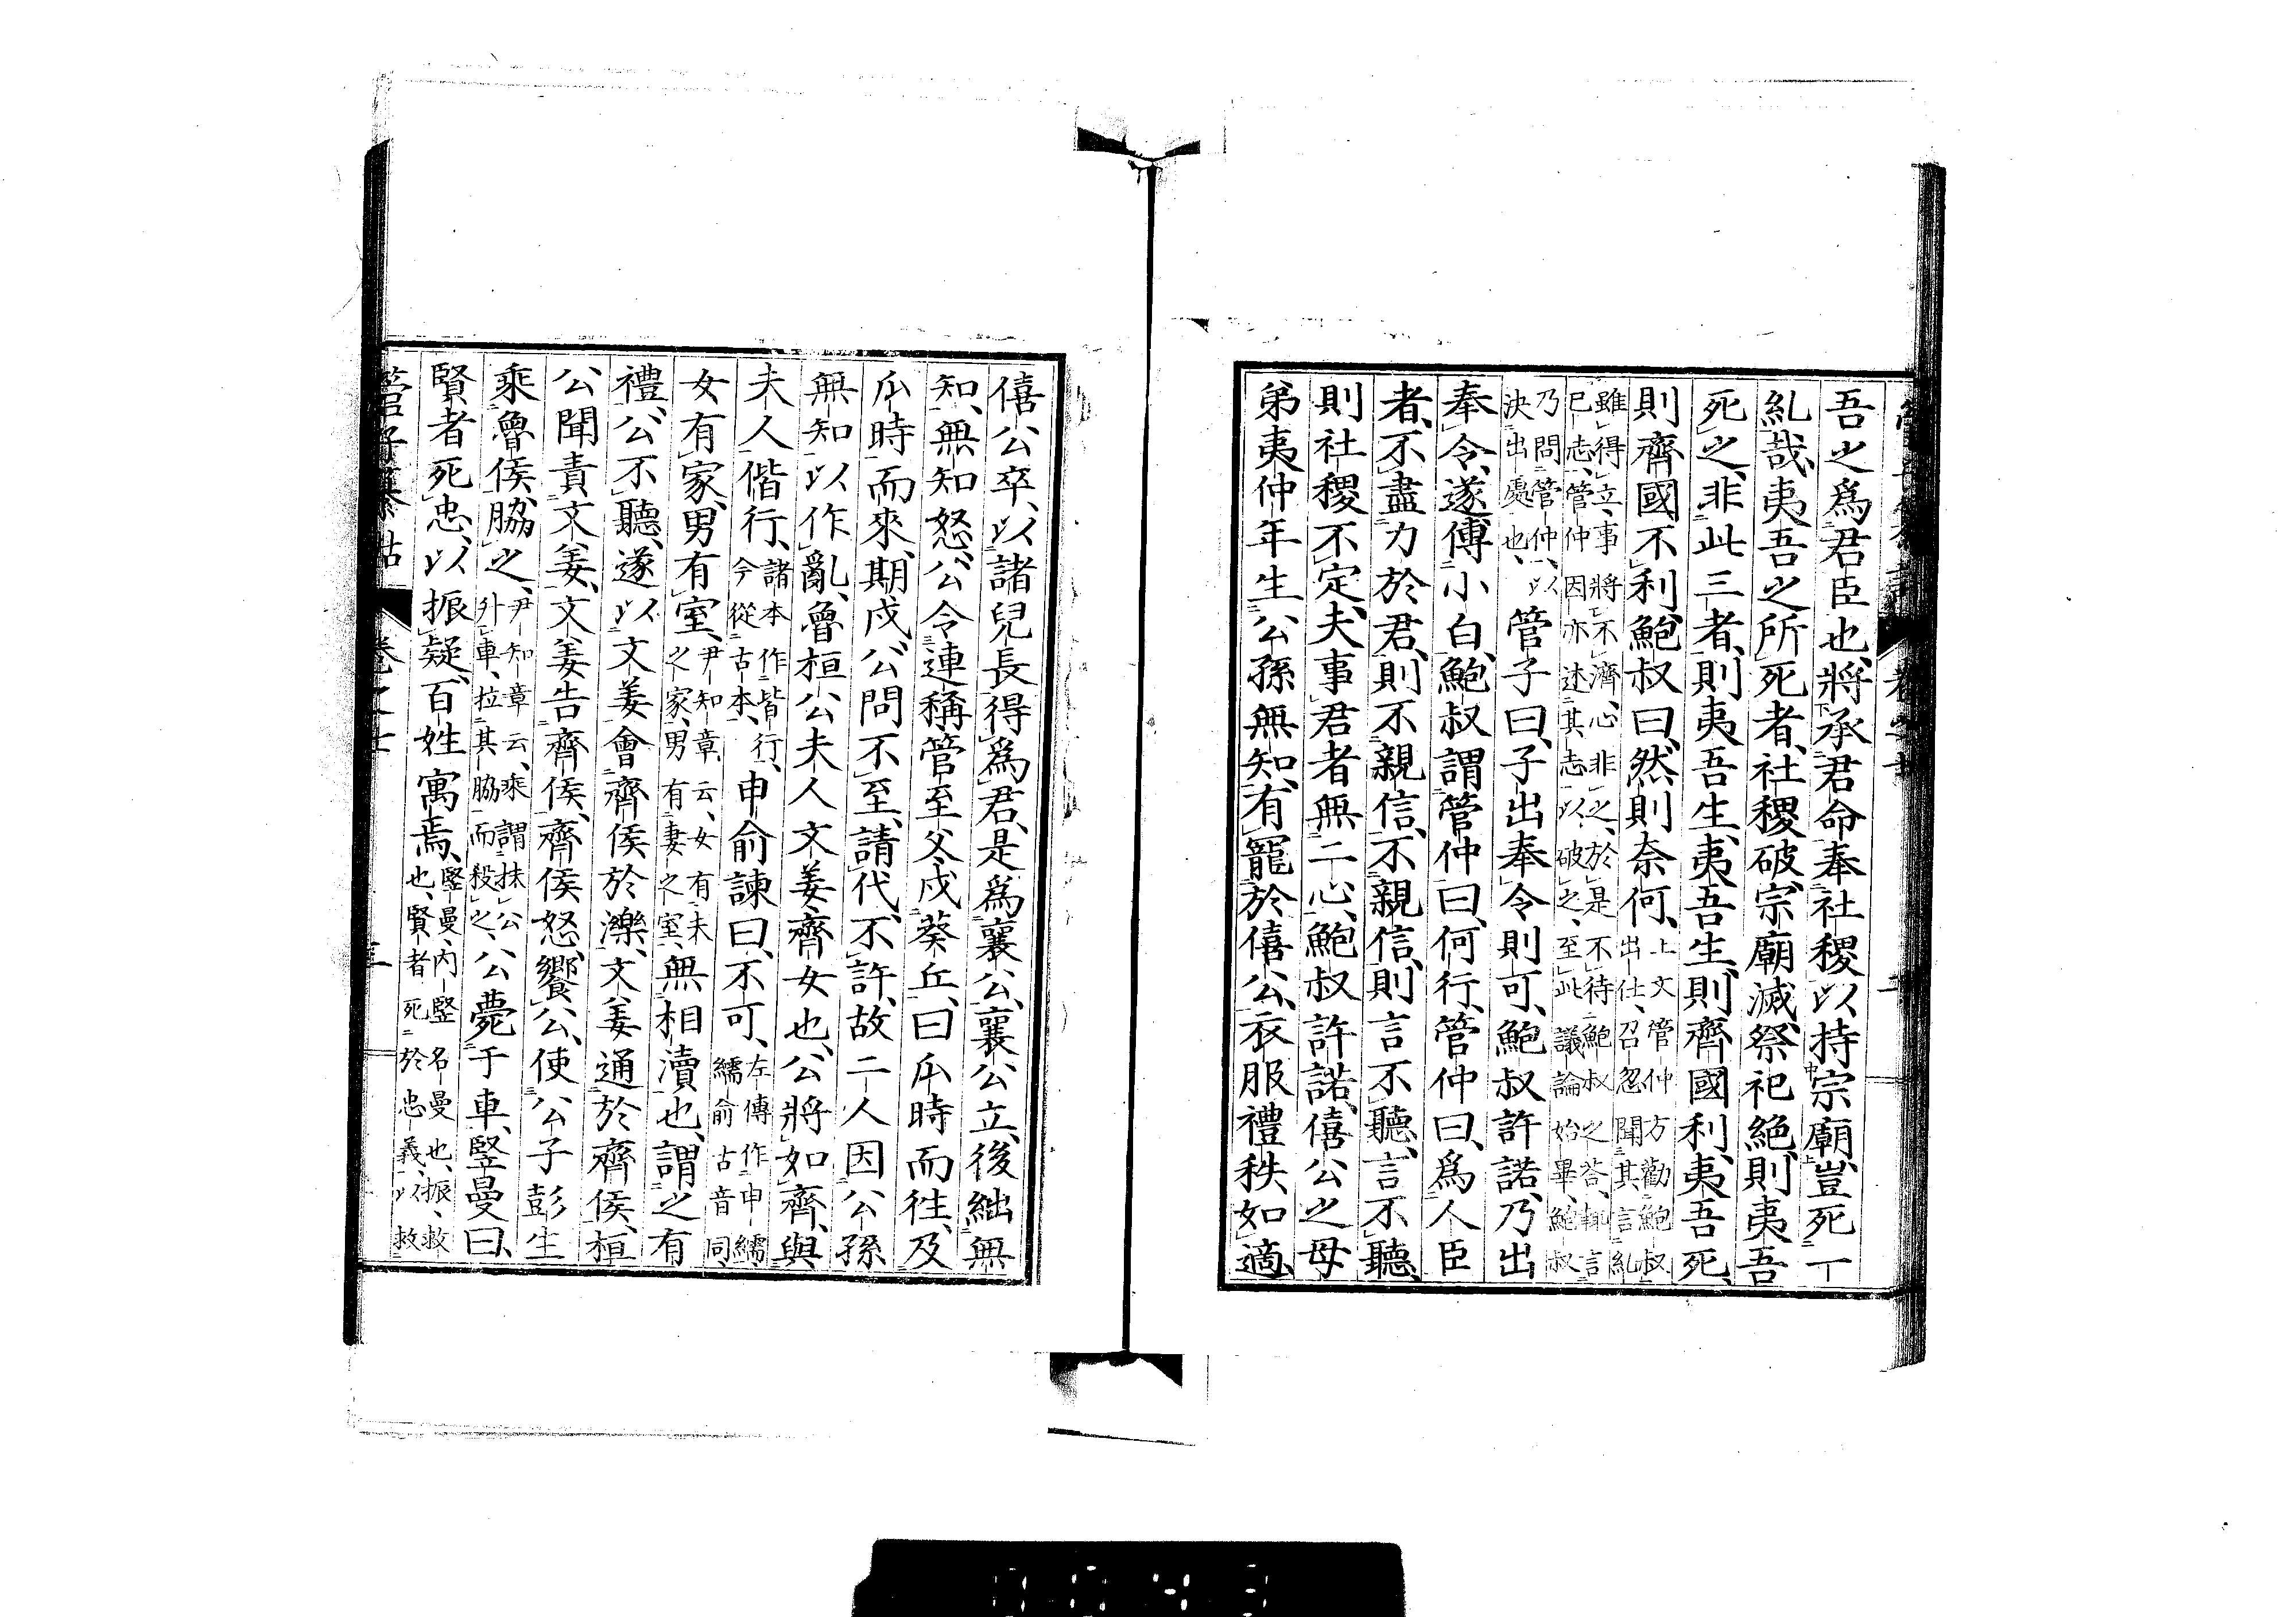 吾之爲君臣也、將承君命奉社稷、以持宗廟、豈死一
糺哉、夷吾之所死者、社稷破、宗廟滅、祭祀絕、則夷吾
死之、非此三者、則夷吾生、夷吾生、則齊國利、夷吾死、
則齊國不利、鮑叔曰、然則奈何、上文管仲方勸鮑叔
出仕、召忽聞其言糺
雖得立、事將不濟、心非之、於是不待鮑叔之答、輙言
已志、管仲因亦述其志以破之、至此議論始畢、鮑叔
乃問管仲、以
決出處也、管子曰、子出奉令則可、鮑叔許諾、乃出
奉令、遂傅小白、鮑叔謂管仲曰、何行、管仲曰、爲人臣
者、不盡力於君、則不親信、不親信、則言不聽、言不聽、
則社稷不定、夫事君者無二心、鮑叔許諾、僖公之母
弟夷仲年生公孫無知、有寵於僖公、衣服禮秩如適、
僖公卒、以諸兒長得爲君、是爲襄公、襄公立、後絀無
知、無知怒、公令連稱管至父戍葵丘、曰瓜時而往、及
瓜時而來、期戍、公問不至、請代、不許、故二人因公孫
無知以作亂、魯桓公夫人文姜、齊女也、公將如齊、與
夫人偕行、諸本作皆行、
今從古本、申俞諫曰、不可、左傳作申繻
繻俞古音同、
女有家、男有室、尹知章云、女有夫
之家、男有妻之室、無相瀆也、謂之有
禮、公不聽、遂以文姜會齊侯於濼、文姜通於齊侯、桓
公聞、責文姜、文姜告齊侯、齊侯怒、饗公、使公子彭生
乘魯侯、脇之、尹知章云、乘謂扶公
外車、拉其脇而殺之、公薨于車、豎曼曰、
賢者死忠、以振疑、百姓寓焉、豎曼、内豎名曼也、振、救
也、賢者死於忠義、以救
管子纂詁
卷之七
三